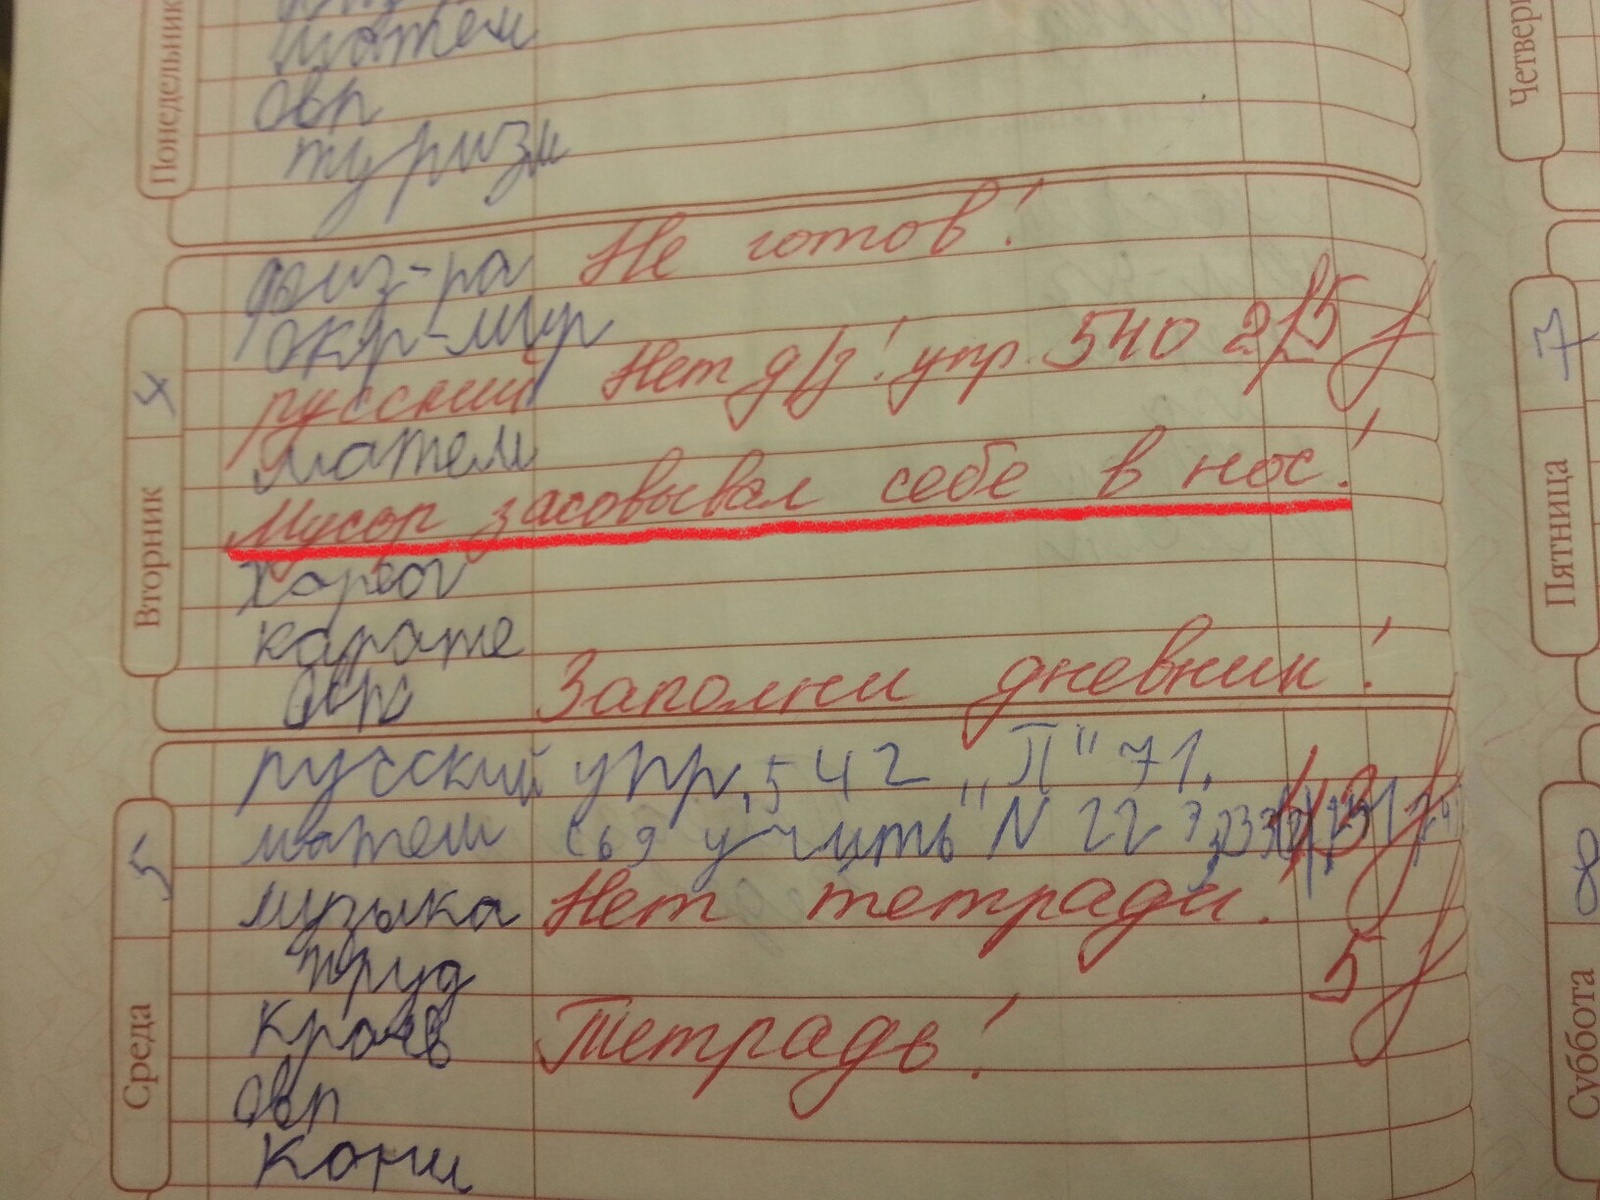 Понедельник
матем
овр
туризм
Четверг
Вторник
4
физ-ра Не готов!
окр-мир
русский Нет д/з! упр. 540 2/5
матем
Мусор засовывал себе в нос!
хореог
карате
овр Заполни дневник!
7
Пятница
Среда
5
русский упр. 542 "П" 71.
матем с69 учить N 227,
музыка Нет тетради!
труд 5
краев Тетрадь!
овр
Кони
8
Суббота